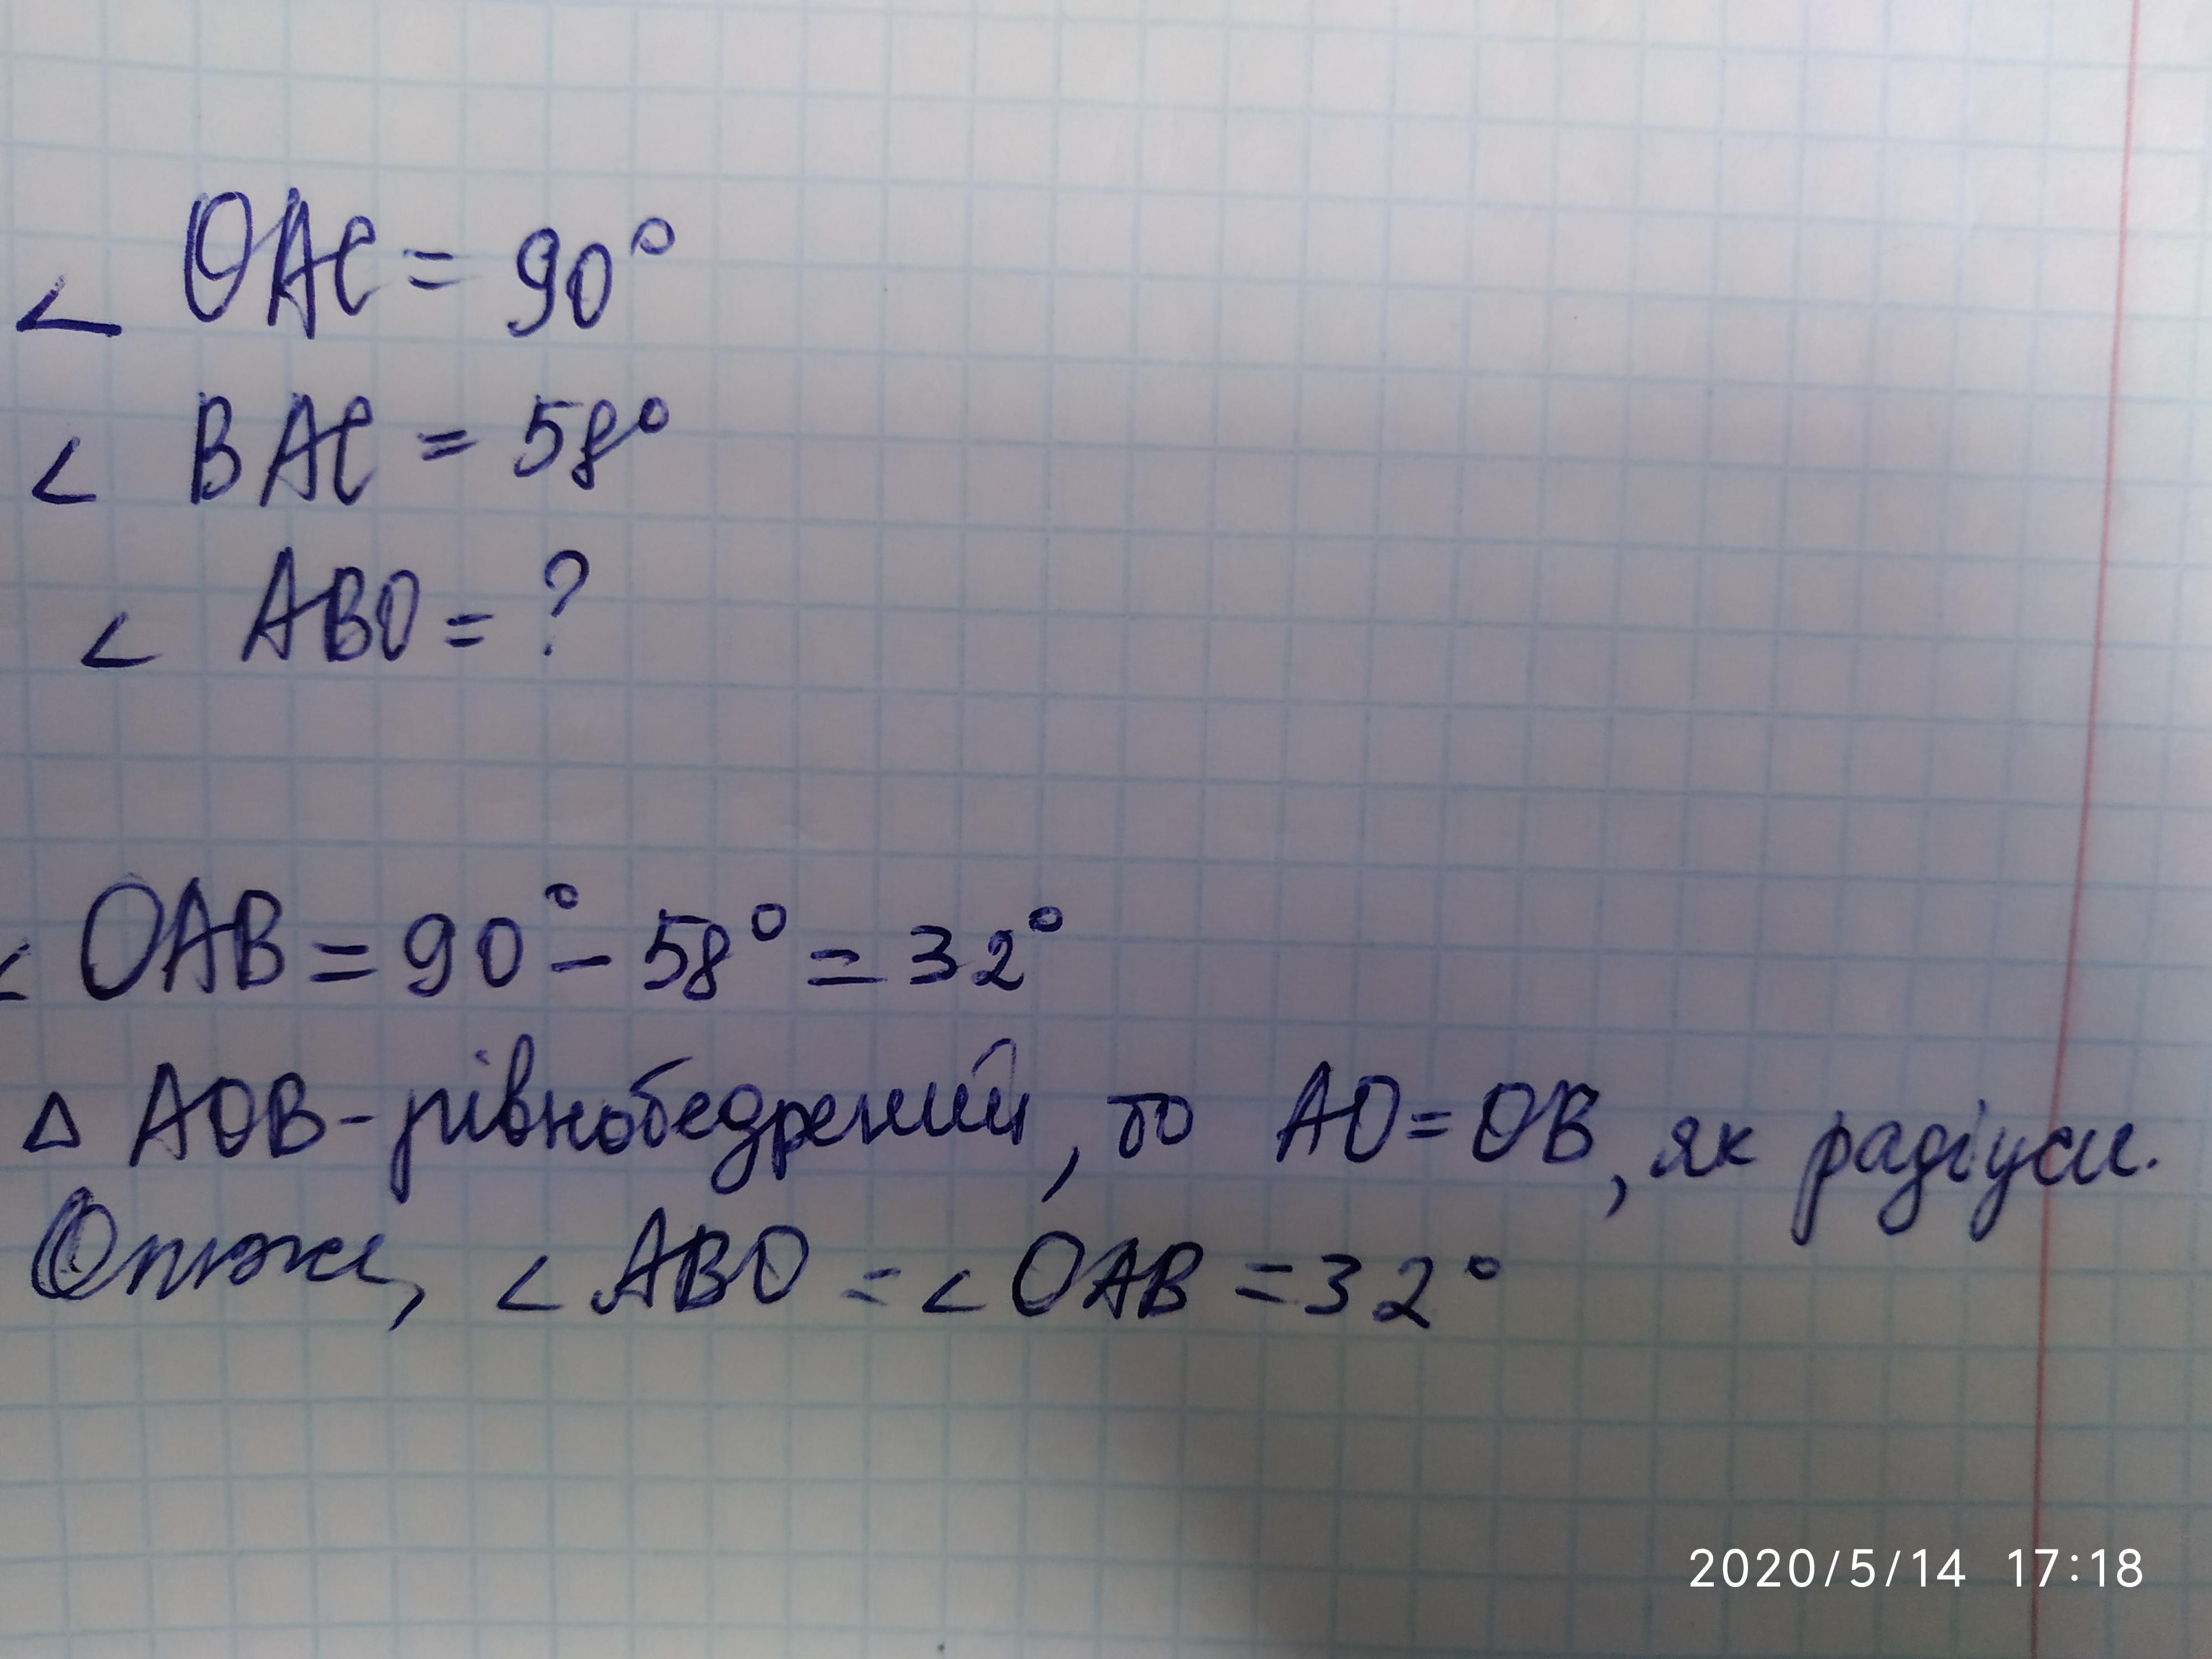 ∠ OAC = 90°
∠ BAC = 58°
∠ ABO = ?
∠ OAB = 90° - 58° = 32°
Δ AOB - рівнобедрений, то AO = OB, як радіуси.
Отже, ∠ ABO = ∠ OAB = 32°
2020/5/14 17:18